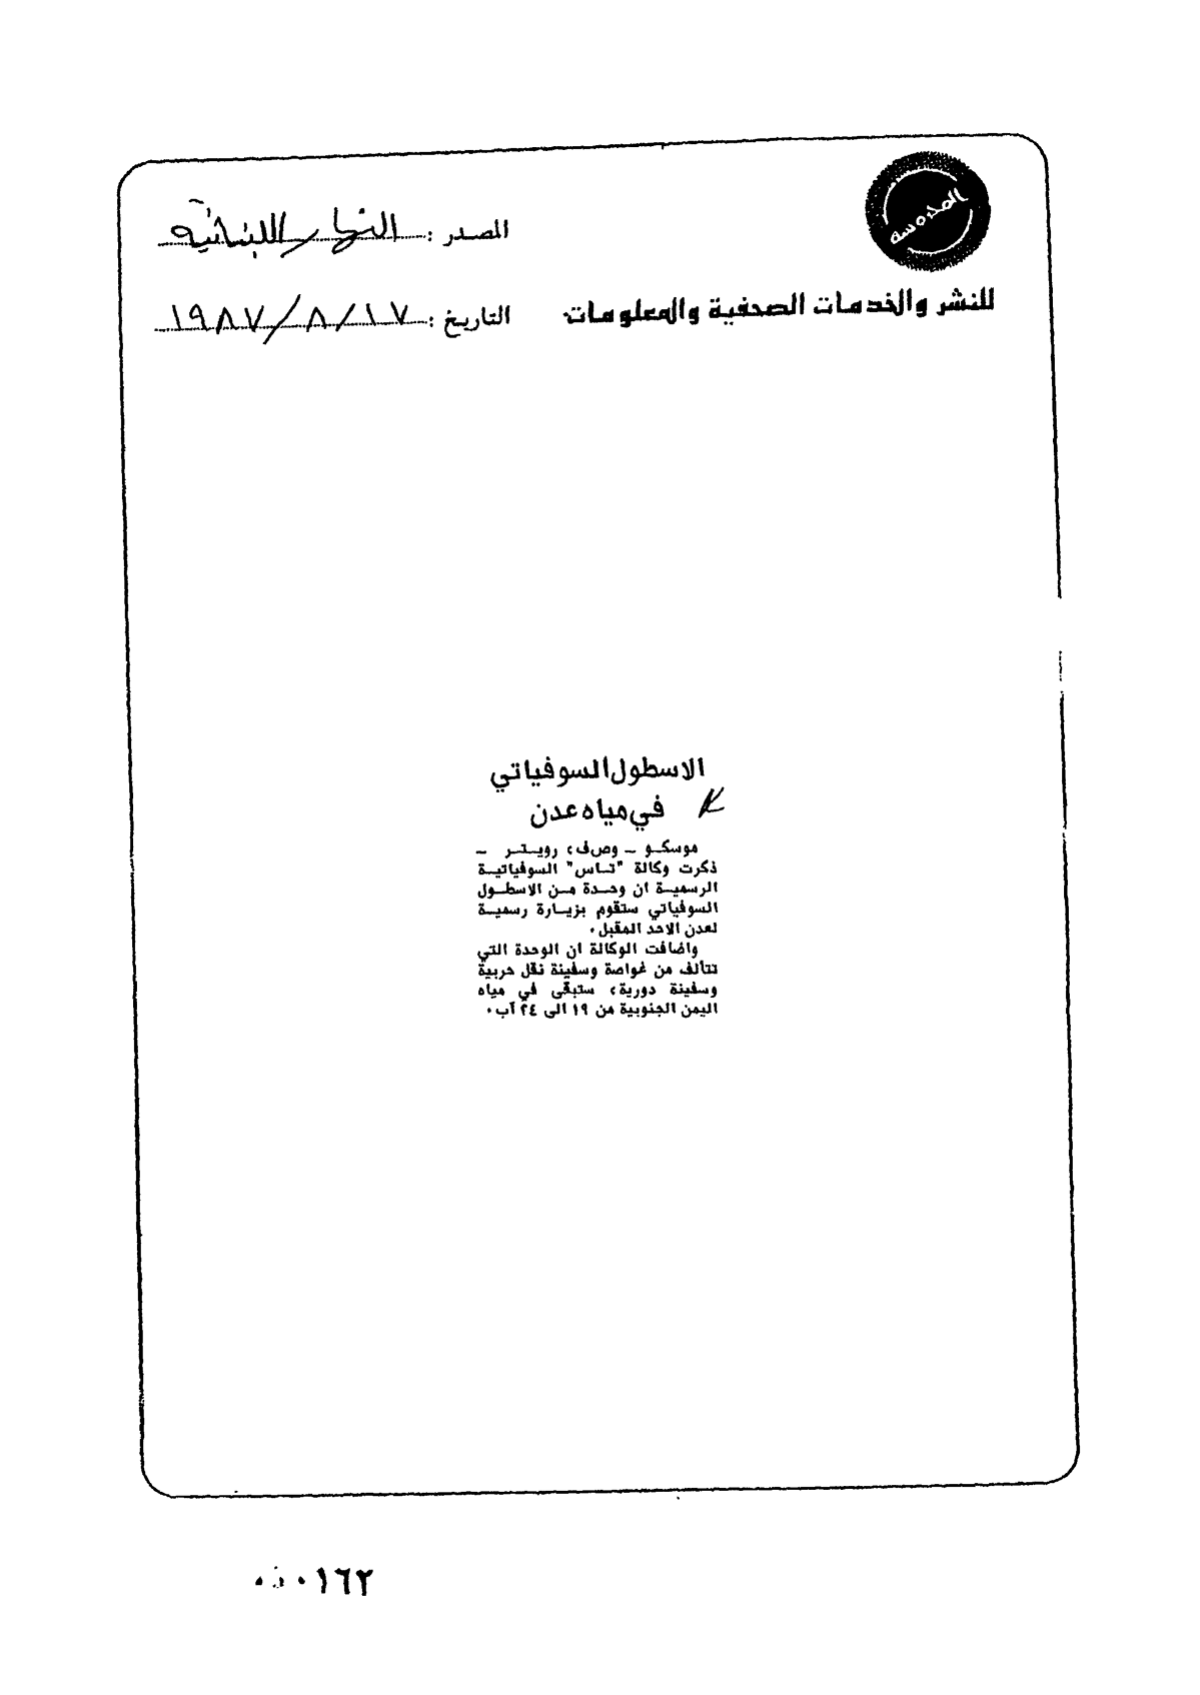 المحروسة
للنشر والخدمات الصحفية والمعلومات
المصدر : النهار اللبنانية
التاريخ : ١٩٨٧/٨/١٧
الاسطول السوفياتي
في مياه عدن
موسكو – وص ف، رويتر –
ذكرت وكالة "تاس" السوفياتية
الرسمية ان وحدة من الاسطول
السوفياتي ستقوم بزيارة رسمية
لعدن الاحد المقبل.
واضافت الوكالة ان الوحدة التي
تتألف من غواصة وسفينة نقل حربية
وسفينة دورية، ستبقى في مياه
اليمن الجنوبية من ١٩ الى ٢٤ آب.
٠١٦٢